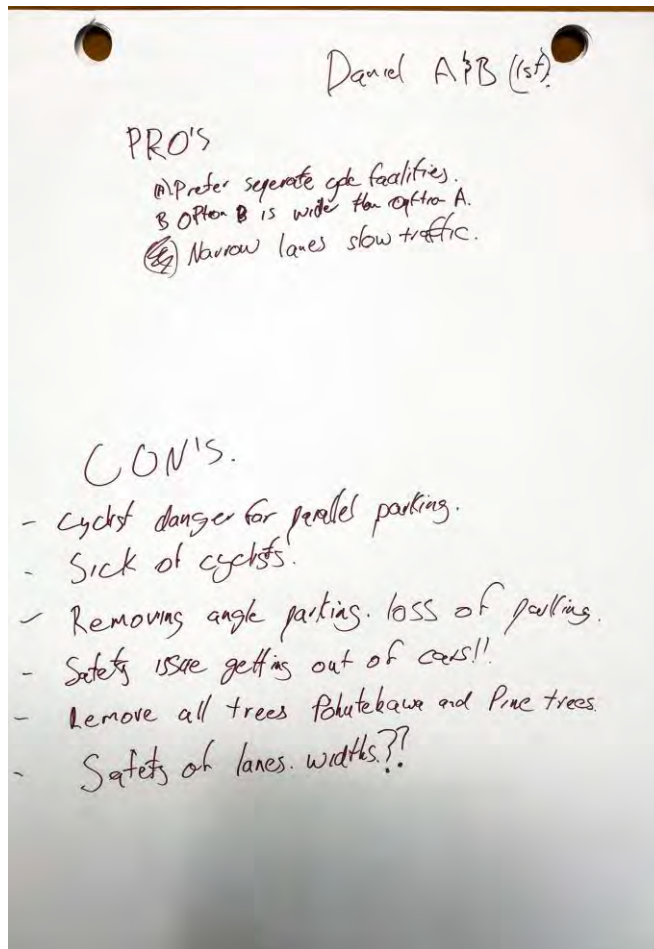 Daniel A&B (1st).
PRO'S
(A) Prefer seperate cycle facalities.
B Option B is wider than option A.
Narrow lanes slow traffic.
CON'S.
- Cyclist danger for parallel parking.
- Sick of cyclists!
- Removing angle parking. loss of parking.
- Safety issue getting out of cars!!
- Remove all trees Pohutekawa and Pine trees.
- Safety of lanes. widths??